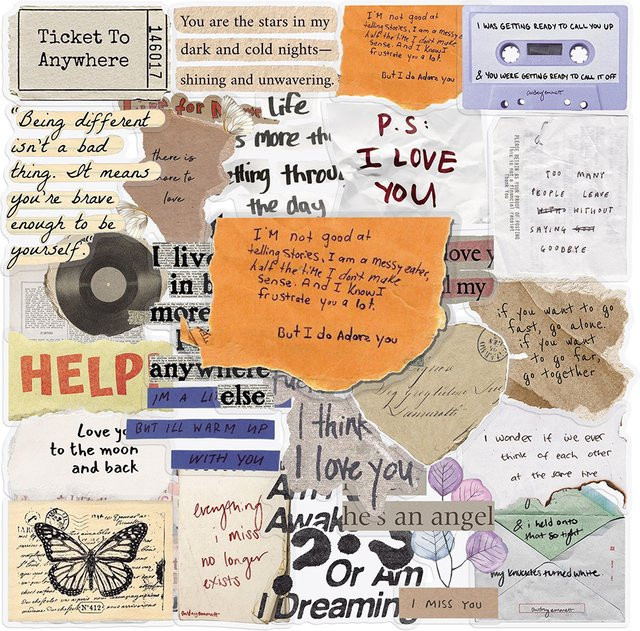 Ticket To
Anywhere
146017
You are the stars in my
dark and cold nights—
shining and unwavering.
I'm not good at
But I do Adore you
I WAS GETTING READY TO CALL YOU UP
& YOU WERE GETTING READY TO CALL IT OFF
"Being different
isn't a bad
thing. It means
you're brave
enough to be
yourself."
there is
more to
love
life
is more than
getting through
the day
P.S:
I LOVE
YOU
TOO MANY
PEOPLE LEAVE
WITHOUT
SAYING
GOODBYE
I live
in b
more
anywhere
else
I'M not good at
telling stories, I am a messy eater,
half the time I don't make
sense. And I know I
frustrate you a lot.
But I do Adore you
love y
my
if you want to go
fast, go alone.
if you want
to go far,
go together
HELP
I'M A LI
BUT ILL WARM UP
WITH YOU
Love yo
to the moon
and back
I think
I love you
i wonder if we ever
think of each other
at the same time
everything
i miss
no longer
exists
Am I
Awak
Or Am
I Dreaming
he's an angel
& i held onto
that so tight
my knuckles turned white.
I MISS YOU
Nº412